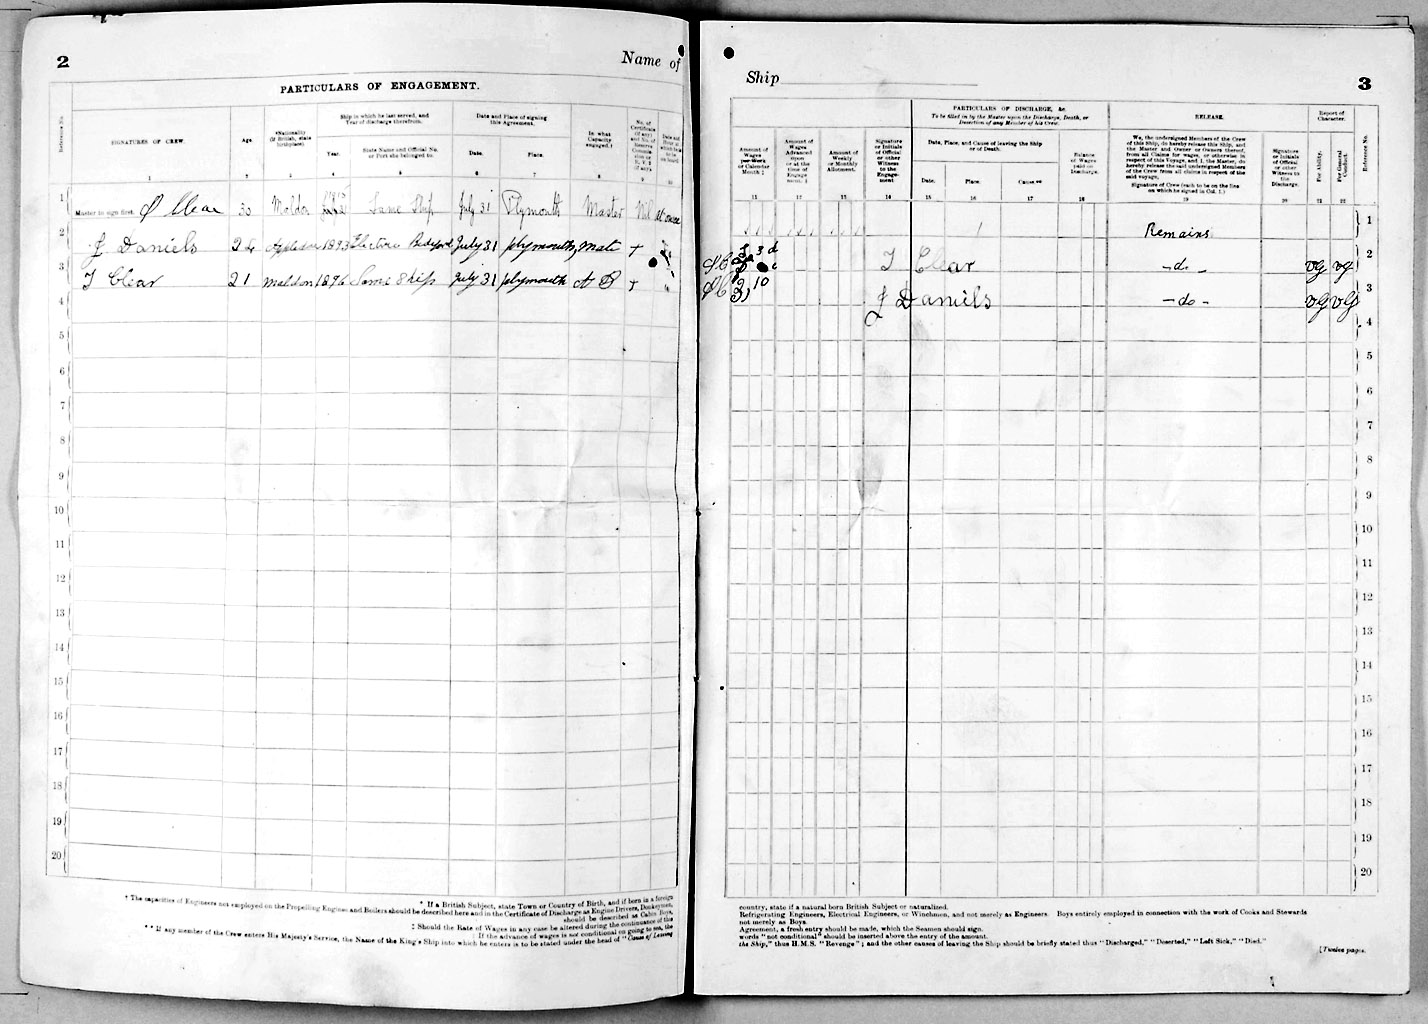 2
Name of
PARTICULARS OF ENGAGEMENT.
Reference No.
SIGNATURES OF CREW.
Age.
*Nationality
(If British, state
birthplace).
Ship in which he last served, and
Year of discharge therefrom.
Year.
State Name and Official No.
or Port she belonged to.
Date and Place of signing
this Agreement.
Date.
Place.
In what
Capacity
engaged.†
No. of
Certificate
(if any)
1 2 3 4 5 6 7 8 9 10
1 Master to sign first. Clear 30 Maldon Same Ship July 31 Plymouth Master Nil At once
2 J Daniels 24 Appledore 1893 Electric Bideford July 31 plymouth mate +
3 T Clear 21 maldon 1896 Same Ship July 31 plymouth A B +
4
5
6
7
8
9
10
11
12
13
14
15
16
17
18
19
20
* If a British Subject, state Town or Country of Birth, and if born in a foreign
† The capacities of Engineers not employed on the Propelling Engines and Boilers should be described here and in the Certificate of Discharge as Engine Drivers, Donkeymen,
should be described as Cabin Boys,
‡ Should the Rate of Wages in any case be altered during the continuance of this
: If the advance of wages is not conditional on going to sea, the
** If any member of the Crew enters His Majesty's Service, the Name of the King's Ship into which he enters is to be stated under the head of "Cause of Leaving
Ship
3
Amount of
Wages
per Week
or Calendar
Month ‡
Amount of
Wages
Advanced
upon
or at the
time of
Engage
ment. ‡
Amount of
Weekly
or Monthly
Allotment.
Signature
or Initials
of Official
or other
Witness to
the
Engage-
ment
PARTICULARS OF DISCHARGE, &c.
To be filled in by the Master upon the Discharge, Death, or
Desertion of any Member of his Crew.
Date, Place, and Cause of leaving the Ship
or of Death.
Date.
Place.
Cause.**
Balance
of Wages
paid on
Discharge.
RELEASE.
We, the undersigned Members of the Crew
of this Ship, do hereby release this Ship, and
the Master and Owner or Owners thereof,
from all Claims for wages, or otherwise in
respect of this Voyage, and I, the Master, do
hereby release the said undersigned Members
of the Crew from all claims in respect of the
said voyage.
Signature of Crew (each to be on the line
on which he signed in Col. 1.)
Signature
or Initials
of Official
or other
Witness to
the
Discharge.
Report of
Character.
For Ability.
For General
Conduct.
Reference No.
11 12 13 14 15 16 17 18 19 20 21 22
Remains 1
T Clear -do- VG VG 2
J Daniels -do- VG VG 3
4
5
6
7
8
9
10
11
12
13
14
15
16
17
18
19
20
country, state if a natural born British Subject or naturalized.
Refrigerating Engineers, Electrical Engineers, or Winchmen, and not merely as Engineers. Boys entirely employed in connection with the work of Cooks and Stewards
not merely as Boys.
Agreement, a fresh entry should be made, which the Seamen should sign.
words "not conditional" should be inserted above the entry of the amount.
the Ship," thus H.M.S. "Revenge"; and the other causes of leaving the Ship should be briefly stated thus "Discharged," "Deserted," "Left Sick," "Died."
[Twelve pages.